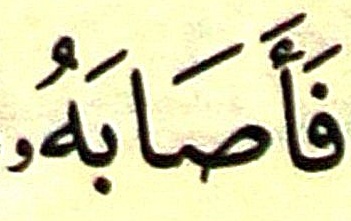 فَأَصَابَهُۥ